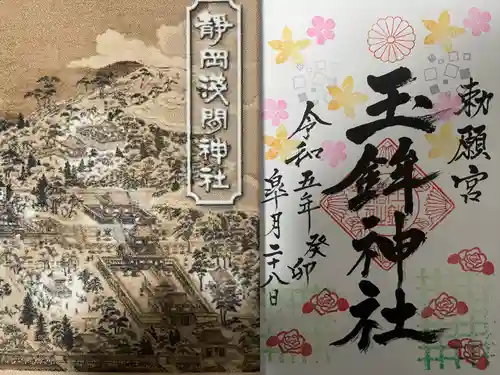 静岡浅間神社
勅願宮
玉鉾神社
令和五年癸卯
皐月二十八日